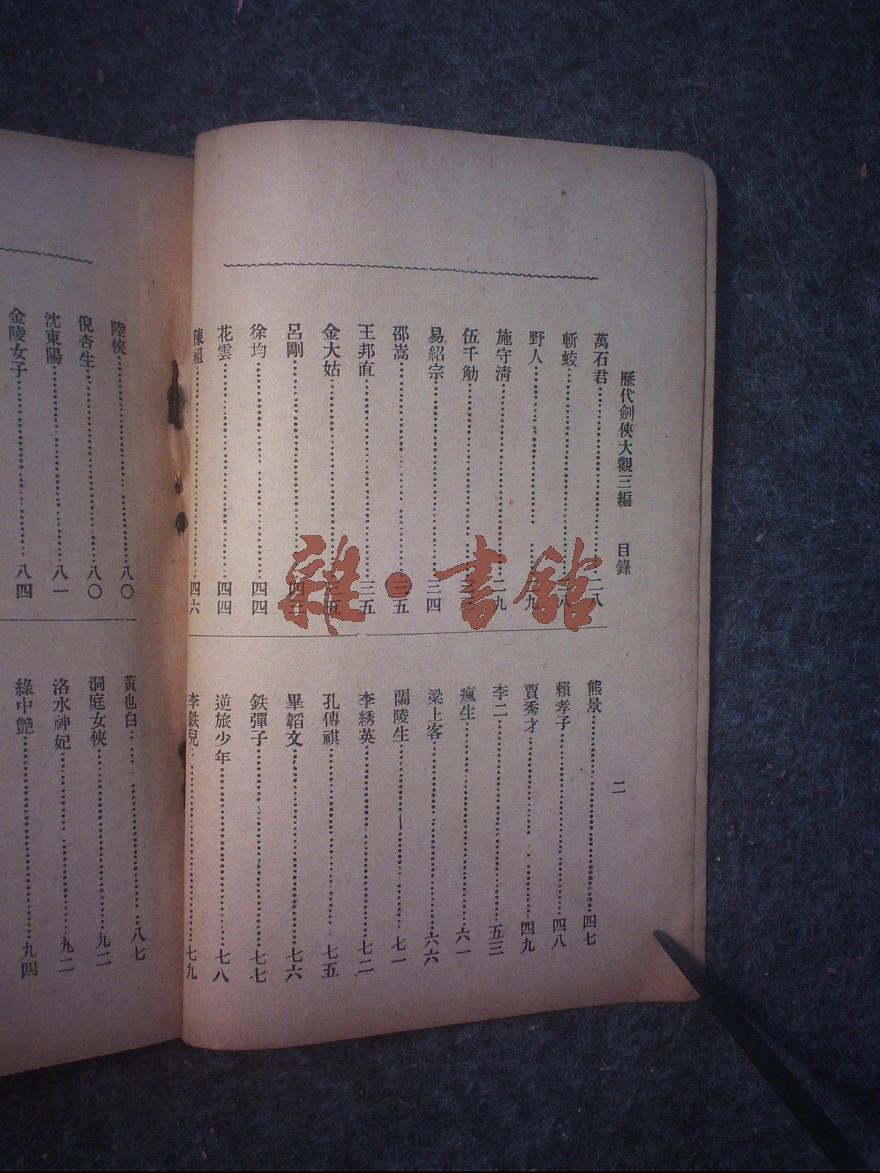 歷代劍俠大觀三編　目錄　二
萬石君……二八
斬蛟……八
野人……九
施守清……二九
伍千觔……三
易紹宗……三四
邵嵩……三五
王邦直……三五
金大姑……三五
呂剛……四三
徐均……四四
花雲……四四
陳祖……四六
熊景……四七
賴孝子……四八
賈秀才……四九
李二……五三
瘋生……六一
梁上客……六六
蘭陵生……七一
李綉英……七二
孔傳祺……七五
畢韜文……七六
鉄彈子……七七
逆旅少年……七八
李鉄兒……七九
陸俠……八〇
倪杏生……八〇
沈東陽……八一
金陵女子……八四
黃也白……八七
洞庭女俠……九二
洛水神妃……九二
綠中艷……九四
雜·書館